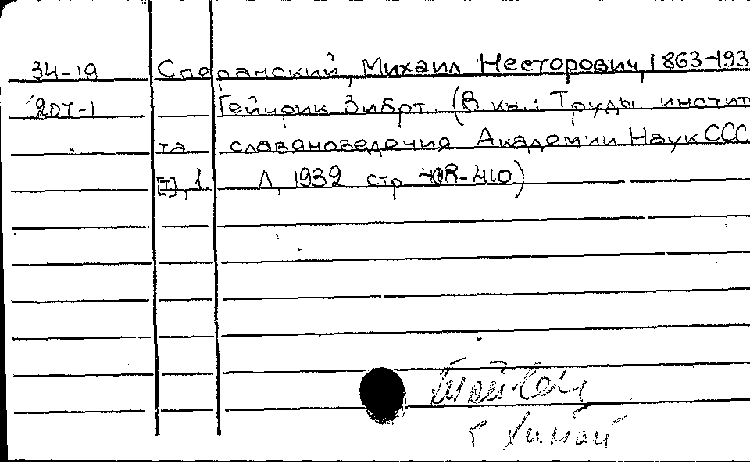 34-19 Сперанский, Михаил Несторович, 1863-193
207-1 Гейнрик Зибрт. (В кн.: Труды инстит
та славяноведения Академии Наук ССС
II, 1 Л, 1932 стр 408-410)